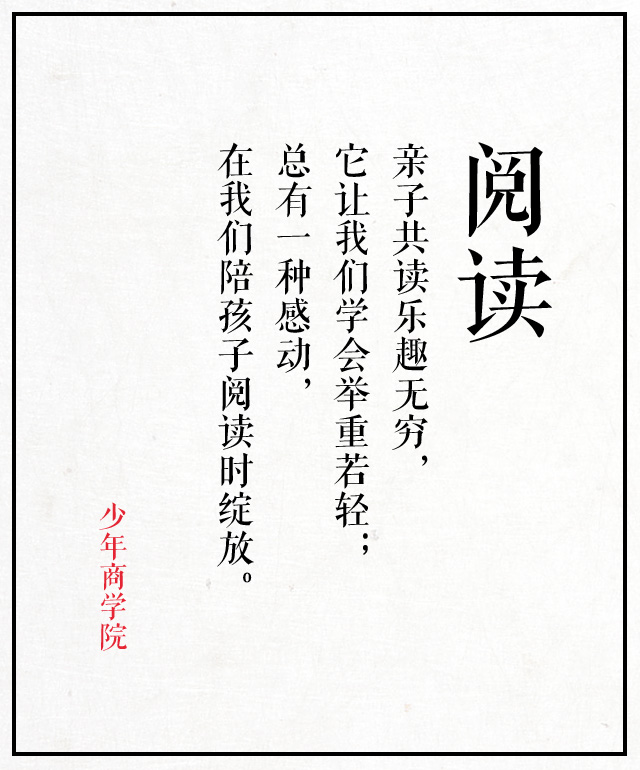 阅读
亲子共读乐趣无穷，
它让我们学会举重若轻；
总有一种感动，
在我们陪孩子阅读时绽放。
少年商学院